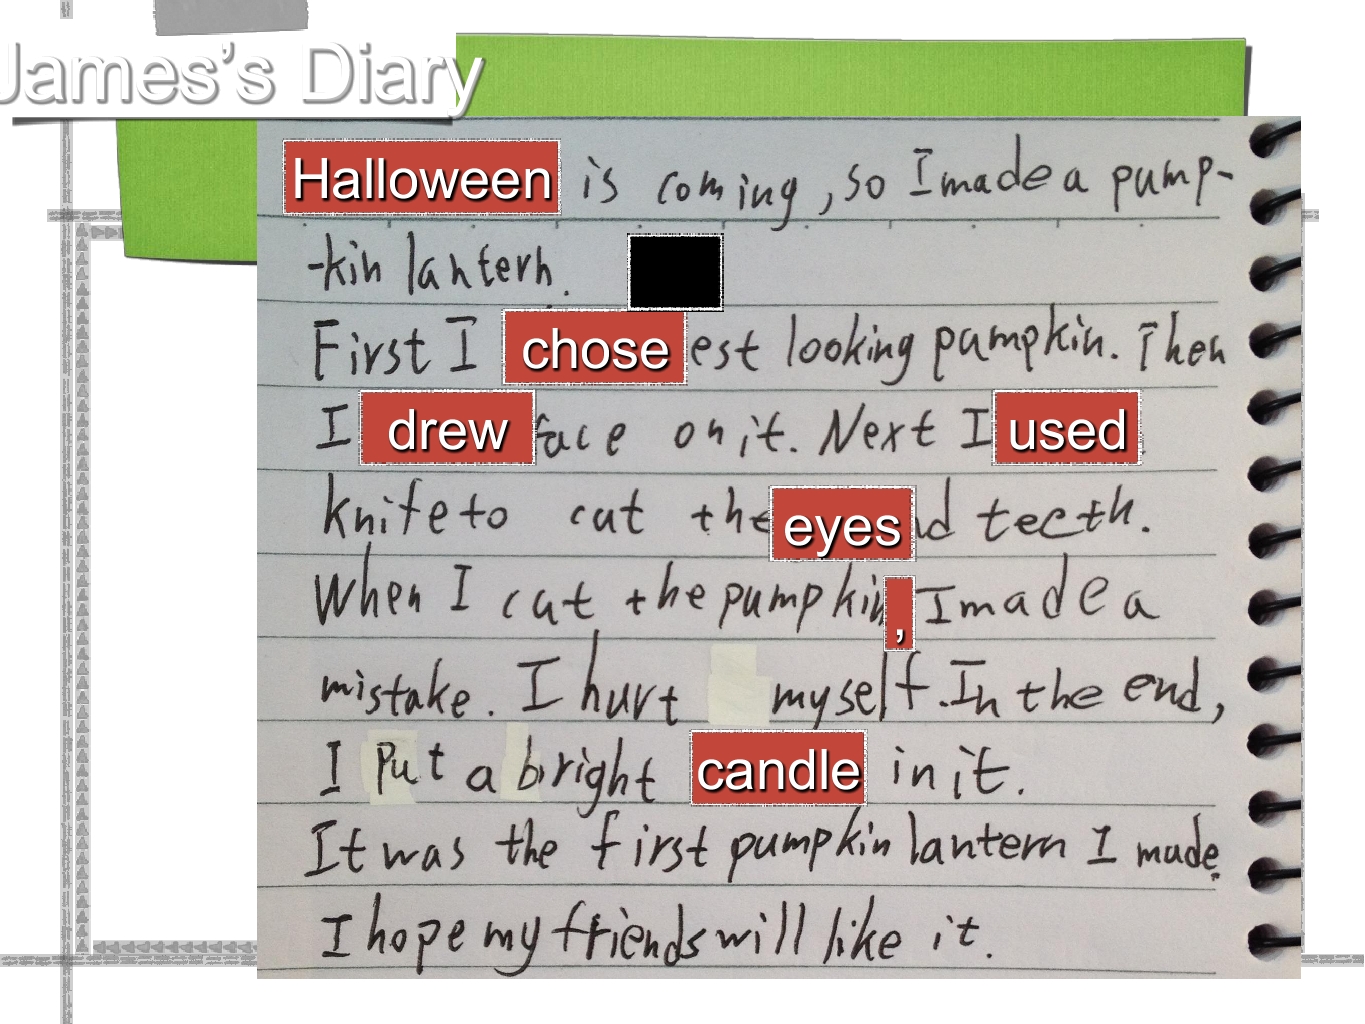 James's Diary
Halloween is coming, so I made a pump-
-kin lantern.
First I chose est looking pumpkin. Then
I drew face on it. Next I used
knife to cut the eyes d teeth.
When I cut the pumpkin, I made a
mistake. I hurt myself. In the end,
I put a bright candle in it.
It was the first pumpkin lantern I made.
I hope my friends will like it.